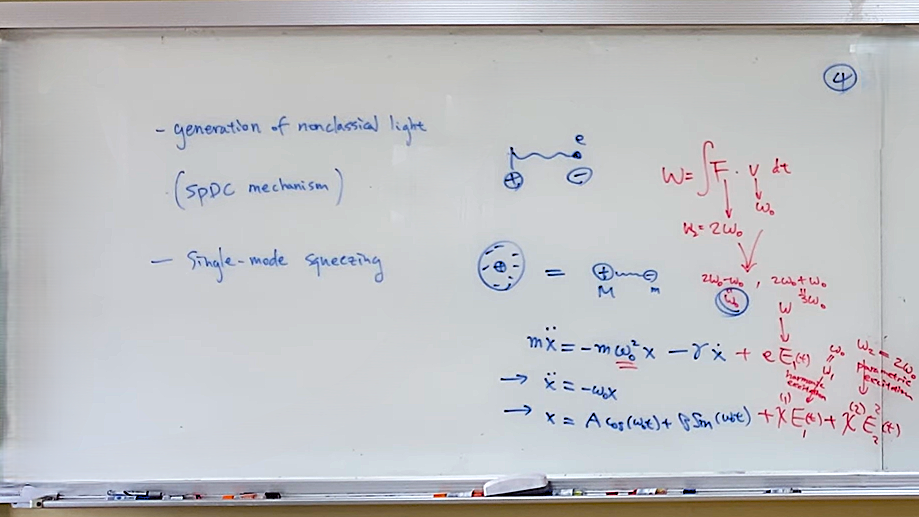 4
- generation of nonclassical light
(SPDC mechanism)
- Single-mode squeezing
e
⊕ ⊖
W = ∫ F · v dt
ω₀
ω₂ = 2ω₀
⊕ = ⊕ ⊖
M m
2ω₀-ω₀ , 2ω₀+ω₀
ω₀ 3ω₀
W
mẍ = -mω₀²x - γẋ + eE₁(t)
ω₀
ω₁
harmonic excitation
ω₂ = 2ω₀
parametric excitation
→ ẍ = -ω₀x
→ x = A cos(ω₀t) + B Sin(ω₀t) + χ⁽¹⁾E₁(t) + χ⁽²⁾E₂²(t)